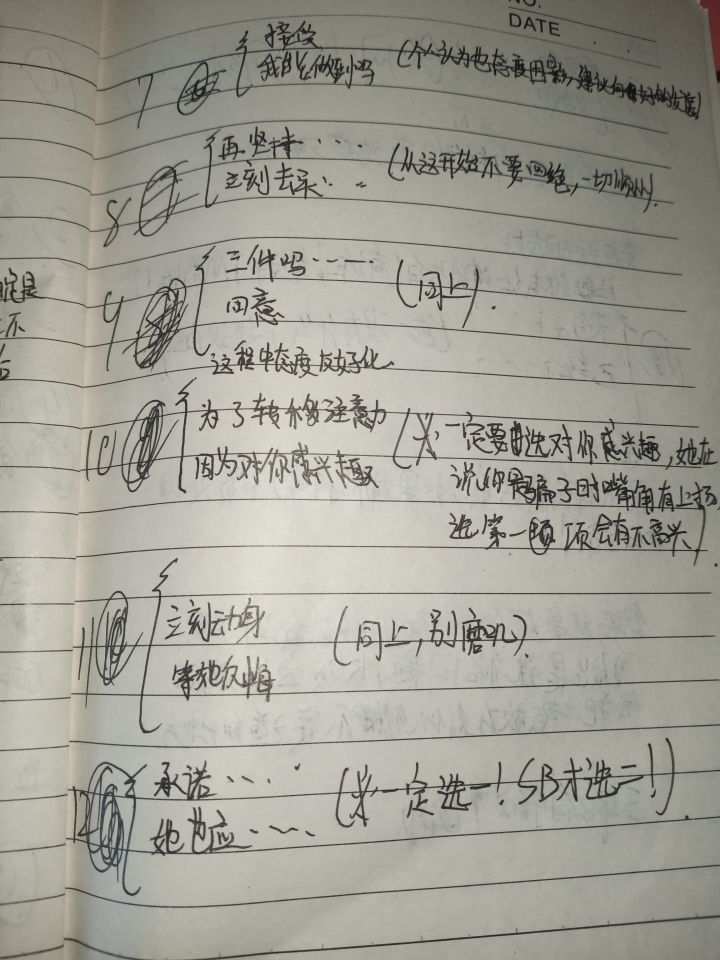 NO.
DATE
7 接受
我能做到吗 (个人认为她态度因影,建议向最好的发展)
8 再坚持····
立刻去采··· (从这开始不要回绝,一切顺从).
9 三件吗·····
回意 (同上).
这程中态度友好化
10 为了转移注意力
因为对你感兴趣 (※一定要选对你感兴趣,她在
说你是骗子时嘴角有上扬,
选第一项会有不高兴)
11 立刻动身
等她反悔 (同上,别磨叽).
12 承诺····
她答应···· (※一定选一!SB才选二!).
是
不